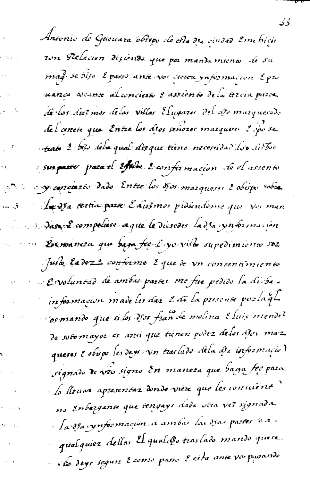 33
Antonio de Guevara obispo de esta dha ciudad E me hicie
ron Relacion diziendo que por mandamiento de su
mag. se hizo E paso ante vos cierta ynformacion E pro
uança tocante al concierto E asiento de la terçia parte
de los diezmos de las villas E lugares del dho marquesado
del çenete que Entre los dhos señores marques E obpo se
trato E hizo de la qual dize que tiene necesidad los dhos
sus partes para el efecto E confirmacion de el asiento
y concierto dado Entre los dhos marques E obispo sobre
la dha terçia parte E a mi me pidiendome que vos man
dase E compeliese a que le diesedes la dha ynformacion
En manera que haga fee E yo visto su pedimiento ser
justo E a dro conforme E que de un consentimiento
E voluntad de ambas partes me fue pedido la dicha
informacion mande les dar E di la presente por la ql
os mando que si los dhos franco de molina E luis mendez
de sotomayor en ansi que tienen poder de los dhos mar
ques E obispo les deys un traslado de la dha informacion
signado de vro signo En manera que haga fee para
la llevar a presentar donde viere que les conviene
no Enbargante que tengays dada otra vez signada
la dha ynformacion a ambas las dhas partes o a
qualquier dellas El qual dho traslado mando que se
lo deys segun E como paso E esta ante vos pagando